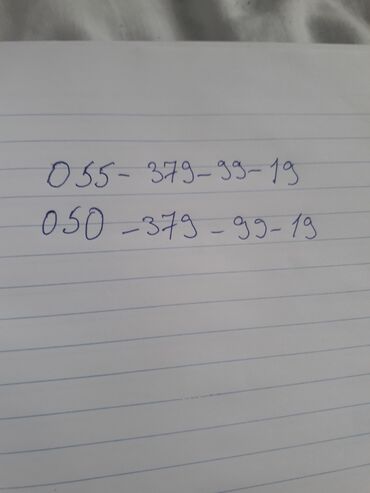 055-379-99-19
050-379-99-19